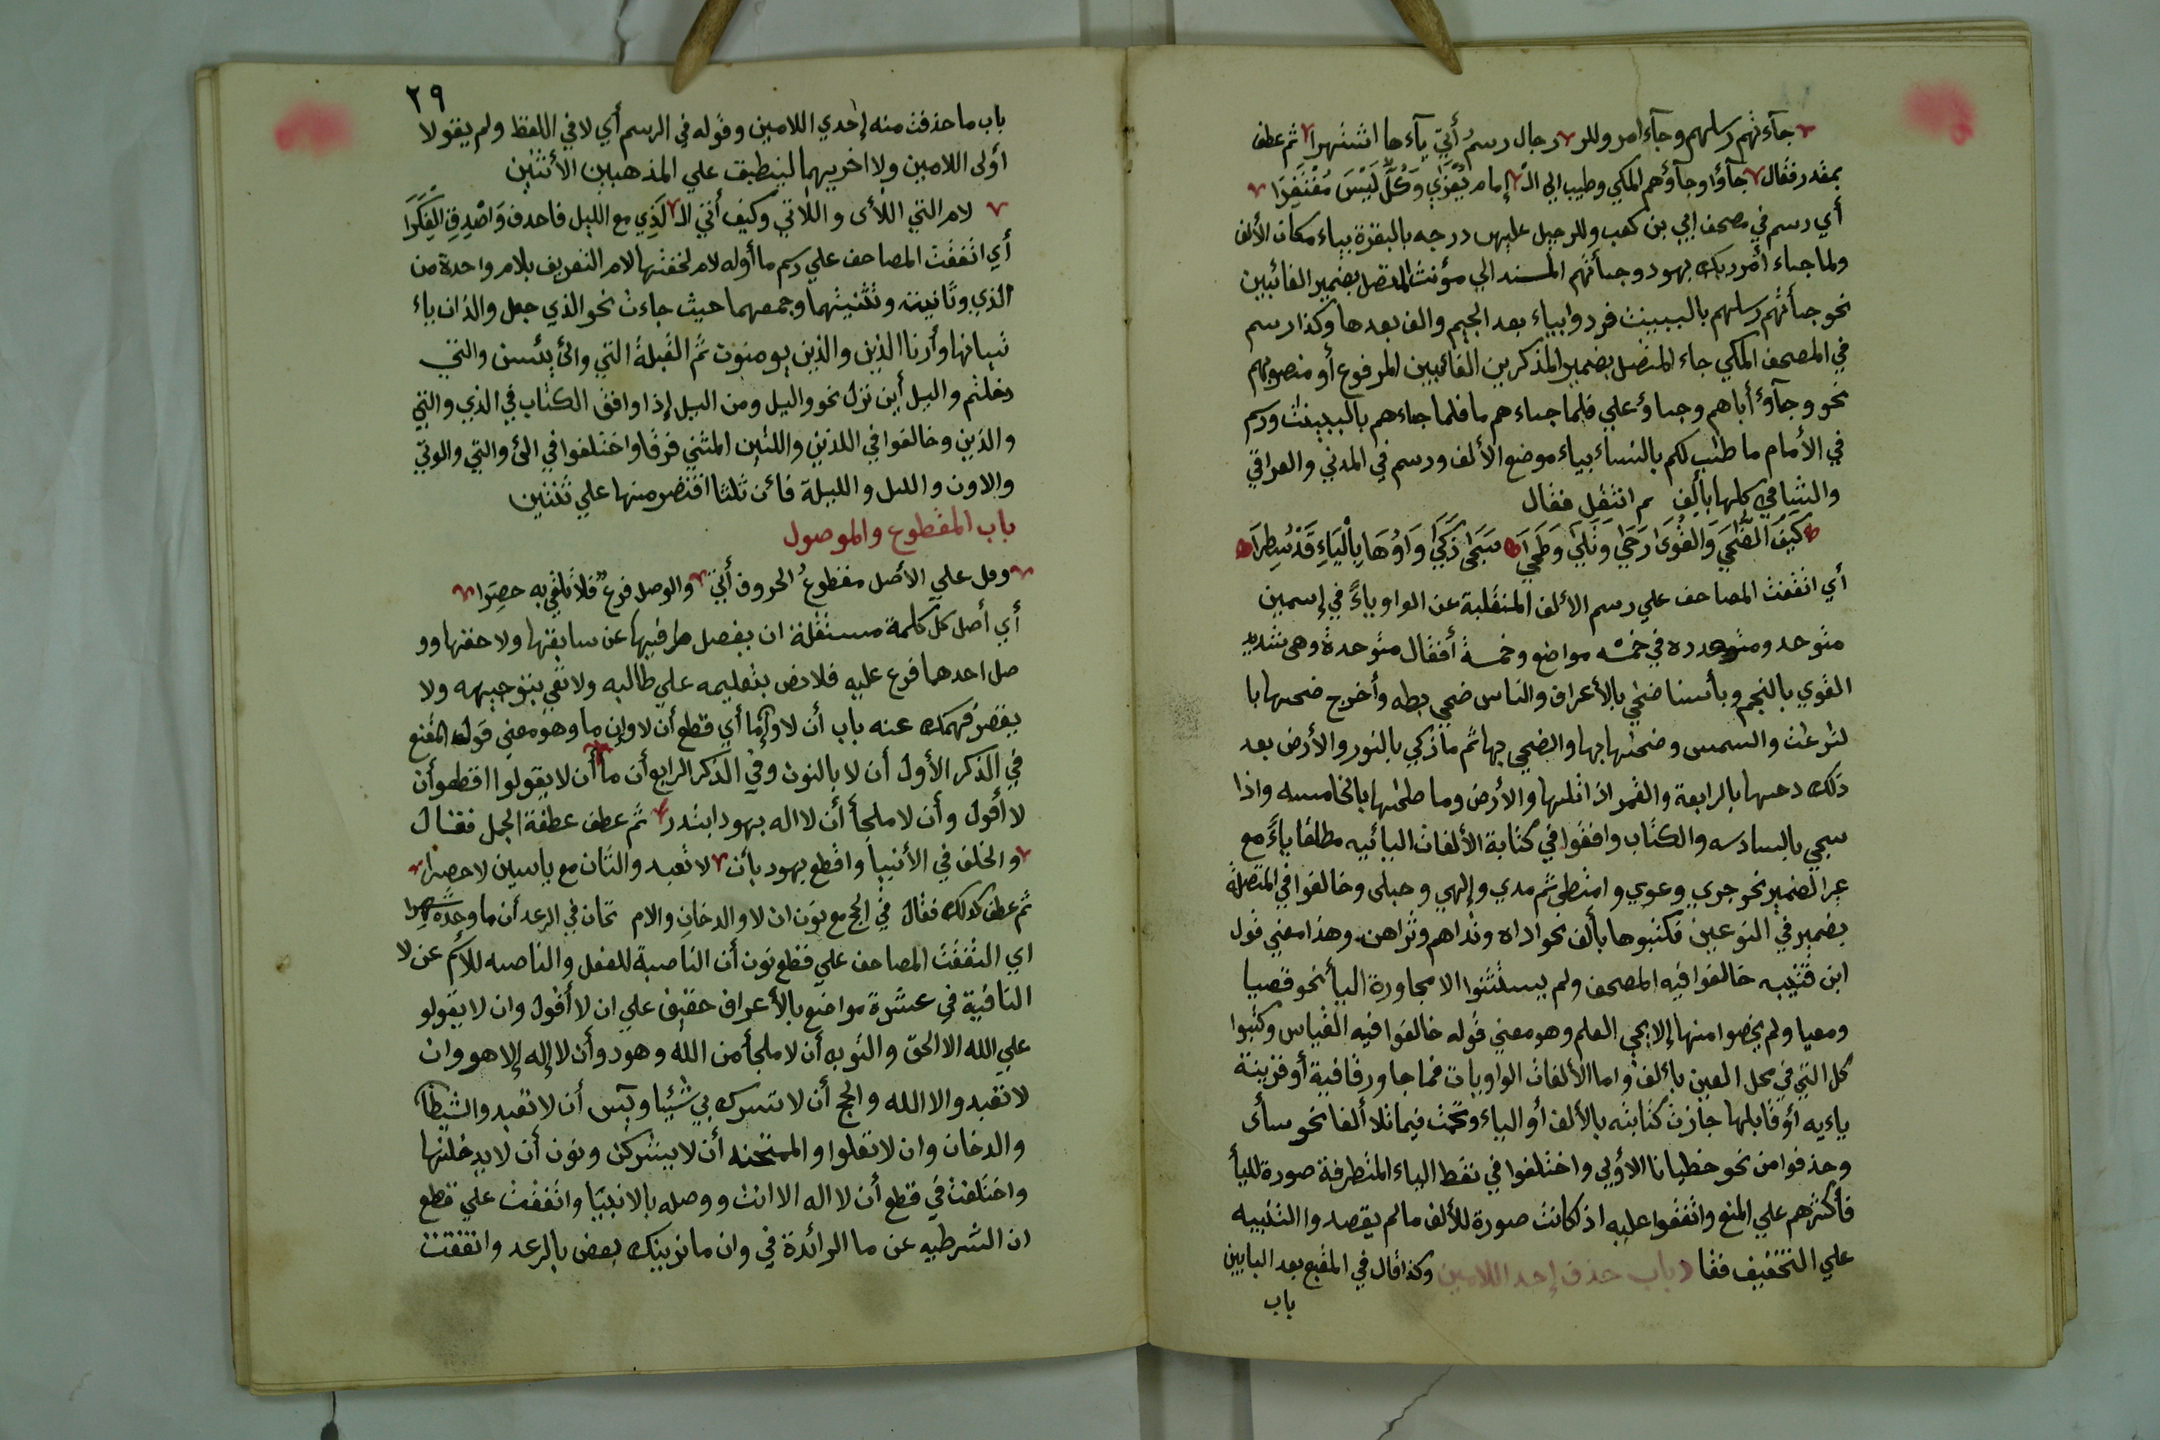 جآءتهم رسلهم وجآء امر وللر رجال رسم أبيّ يآءها اشتهرا ثم عطف
بمقدر فقال جآؤا وجآؤهم المكي وطيب الي الـ إمام يُعْزَي وَكُلٌّ لَيْسَ مُقْتَفِرَا
أي رسم في مصحف ابي بن كعب وللرجيل عليهن درجه بالبقرة بياء مكان الألف
ولما جياء أمر ربك بهود وجيأتهم المسند الي مؤنث المتصل بضمير الغائبين
نحو جيأتهم رسلهم بالبينت فردوا بياء بعد الجيم والف بعدها وكذا رسم
في المصحف المكي جاء المتصل بضمير المذكرين الغائبين المرفوع أو منصوبهم
نحو وجآؤ أباهم وجياؤ علي فلما جياءهم ما فلما جاءهم بالبينت ورسم
في الأمام ما طيب لكم بالنساء بياء موضع الألف ورسم في المدني والعراقي
والشامي كلها بألف ثم انتقل فقال
كَيْفَ الضُّحَي وَالقُوَي دَحَي وَتَلَي وَطَحَي سَجَي زَكَي وَاوُهَا بِالْيَاءِ قَدْ سُطِرَا
أي اتفقت المصاحف علي رسم الألف المنقلبة عن الواو ياءً في إسمين
متوحد ومتعدده في خمسه مواضع وخمسة أفعال متوحدة وهي شديد
القوي بالنجم وبأسنا ضحي بالأعراف والناس ضحي بطه وأخرج ضحيها با
لنزعت والشمس وضحيها بها والضحي بها ثم ما زكي بالنور والأرض بعد
ذلك دحيها بالرابعة والقمر اذا تليها والأرض وما طحيها بالخامسه واذا
سجي بالسادسه والكتاب وافقوا في كتابة الألفات اليائيه مطلقا ياءً مع
غير الضمير نحو جري وعوي وامتطي ثم مدي وإلهي وحبلي وخالفوا في المتصلة
بضمير في النوعين فكتبوها بألف نحو اداه ونداهم وثراهن وهذا معني قول
ابن قتيبه خالفوا فيه المصحف ولم يستثنوا الا مجاورة اليأ نحو قصيا
ومعيا ولم يخصوا منها إلا يحي العلم وهو معني قوله خالفوا فيه القياس وكتبوا
كل التي في محل العين بالف واما الألفات الواويات فما جاور قافية أو قرينة
يائيه أو قابلها جازت كتابته بالألف أو الياء وتحمت فيما تلا ألفا نحو سأي
وحذفوا من نحو خطيانا الأولي واختلفوا في نقط الياء المتطرفة صورة لليأ
فأكثرهم علي المنع واتفقوا عليه اذ كانت صورة للألف ما لم يقصدوا التنبيه
علي التخفيف فقا د باب حذف إحد اللامين وكذا قال في المقنع بعد البابين
باب
٢٩
باب ما حذفت منه إحدي اللامين وقوله في الرسم أي لا في اللفظ ولم يقولا
أولي اللامين ولا اخريهما لينطبق علي المذهبين الأثنين
لام التي اللأى واللاتي وكيف أتي الـ لَذِي مع الليل فاحذف وَاصْدِقِ الفِكَرَا
أي اتفقت المصاحف علي رسم ما أوله لام لحقتها لام التعريف بلام واحدة من
الذي وتانيثه وتثنيتهما وجمعهما حيث جاءت نحو الذي جعل والذان ياء
تيانها وأرنا الذين والذين يومنون ثم القبلة التي والئ يئسن والتي
دخلتم واليل أين نزل نحو واليل ومن اليل إذا وافق الكتاب في الذي والتي
والذين وخالفوا في اللذين واللتين المثني فرقا واختلفوا في الئ والتي والوتي
والاون والليل والليلة فأن ثلثا اقتصر منها علي ثنتين
باب المقطوع والموصول
وقل علي الأصل مقطوعُ الحروف أتي والوصل فرع فلا تلفي به حصِرَا
أي أصل كل كلمة مستقلة ان يفصل طرفيها عن سابقها ولاحقها وو
صل احدهما فرع عليه فلا تض بتعليمه علي طالبه ولا تغي بتوجيهه ولا
يقصر فهمك عنه باب أن لا وإما أي قطع أن لا وإن ما وهو معني قوله المقنع
في الذكر الأول أن لا بالنون وفي الذكر الرابع أن ما أن لا يقولوا اقطعوا أن
لا أقول وأن لا ملجأ أن لا اله بهود ابتدر ثم عطف عطفة الجمل فقال
والخلف في الأنبيأ واقطع بهود بأن لا تعبد والثان مع ياسين لا حصِرا
ثم عطف كذلك فقال في الحج مع نون ان لا والدخان والام تحان في الرعد أن ما وحدَه شهرا
اي التفقت المصاحف علي قطع نون أن الناصبة للفعل والناصبه للأسم عن لا
النافية في عشرة مواضع بالأعراف حقيق علي ان لا أقول وان لا يقولو
علي الله الا الحق والتوبه أن لا ملجأ من الله وهود وأن لا إله إلا هو وان
لا تعبدوا الا الله والحج أن لا تشرك بي شئيا ويس أن لا تعبدوا الشيطا
والدخان وان لا تعلوا والممتحنه أن لا يشركن ونون أن لا يدخلنها
واختلفت في قطع أن لا اله الا انت ووصله بالانبيا واتفقت علي قطع
ان الشرطيه عن ما الزائدة في وان ما نرينك بعض بالرعد واتفقت